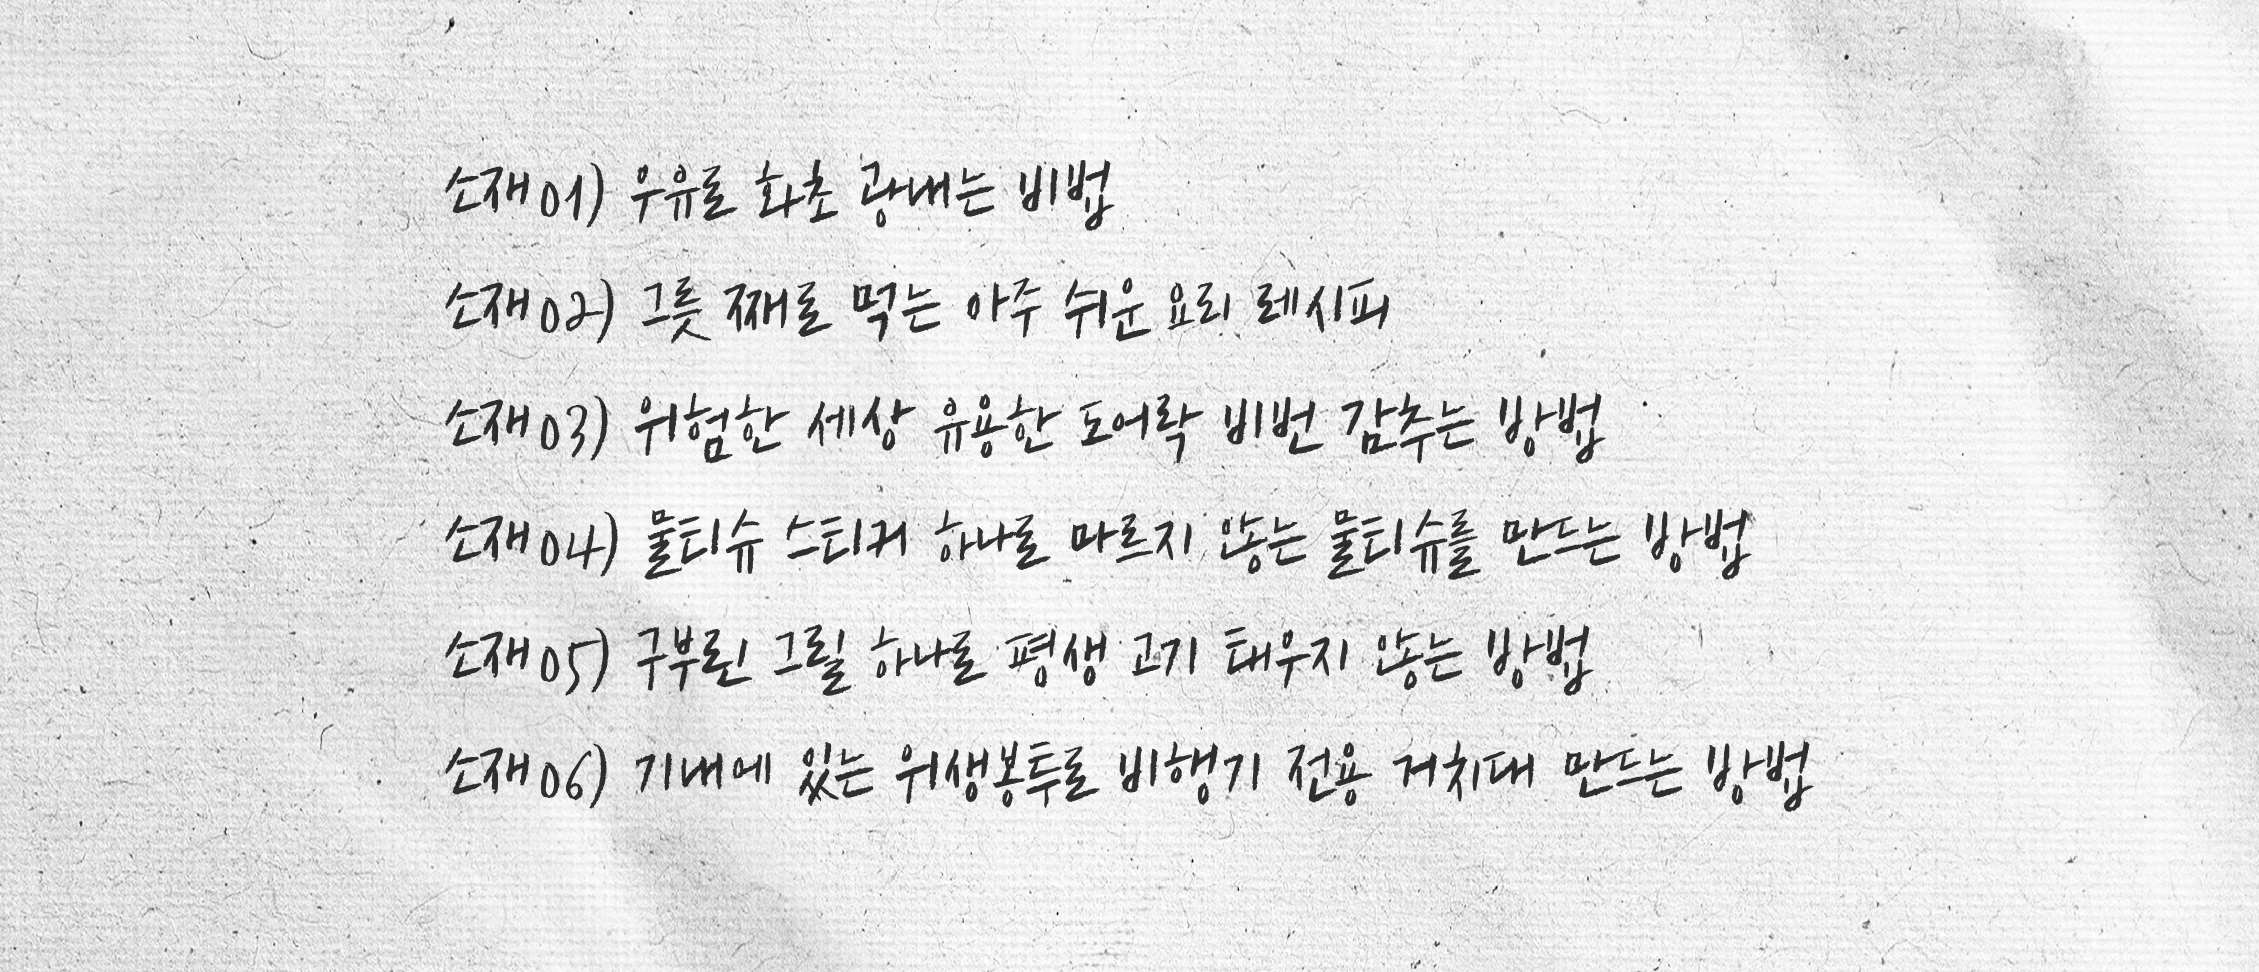 소재01) 우유로 화초 광내는 비법
소재02) 그릇 째로 먹는 아주 쉬운 요리 레시피
소재03) 위험한 세상 유용한 도어락 비번 감추는 방법
소재04) 물티슈 스티커 하나로 마르지 않는 물티슈를 만드는 방법
소재05) 구부린 그릴 하나로 평생 고기 태우지 않는 방법
소재06) 기내에 있는 위생봉투로 비행기 전용 거치대 만드는 방법